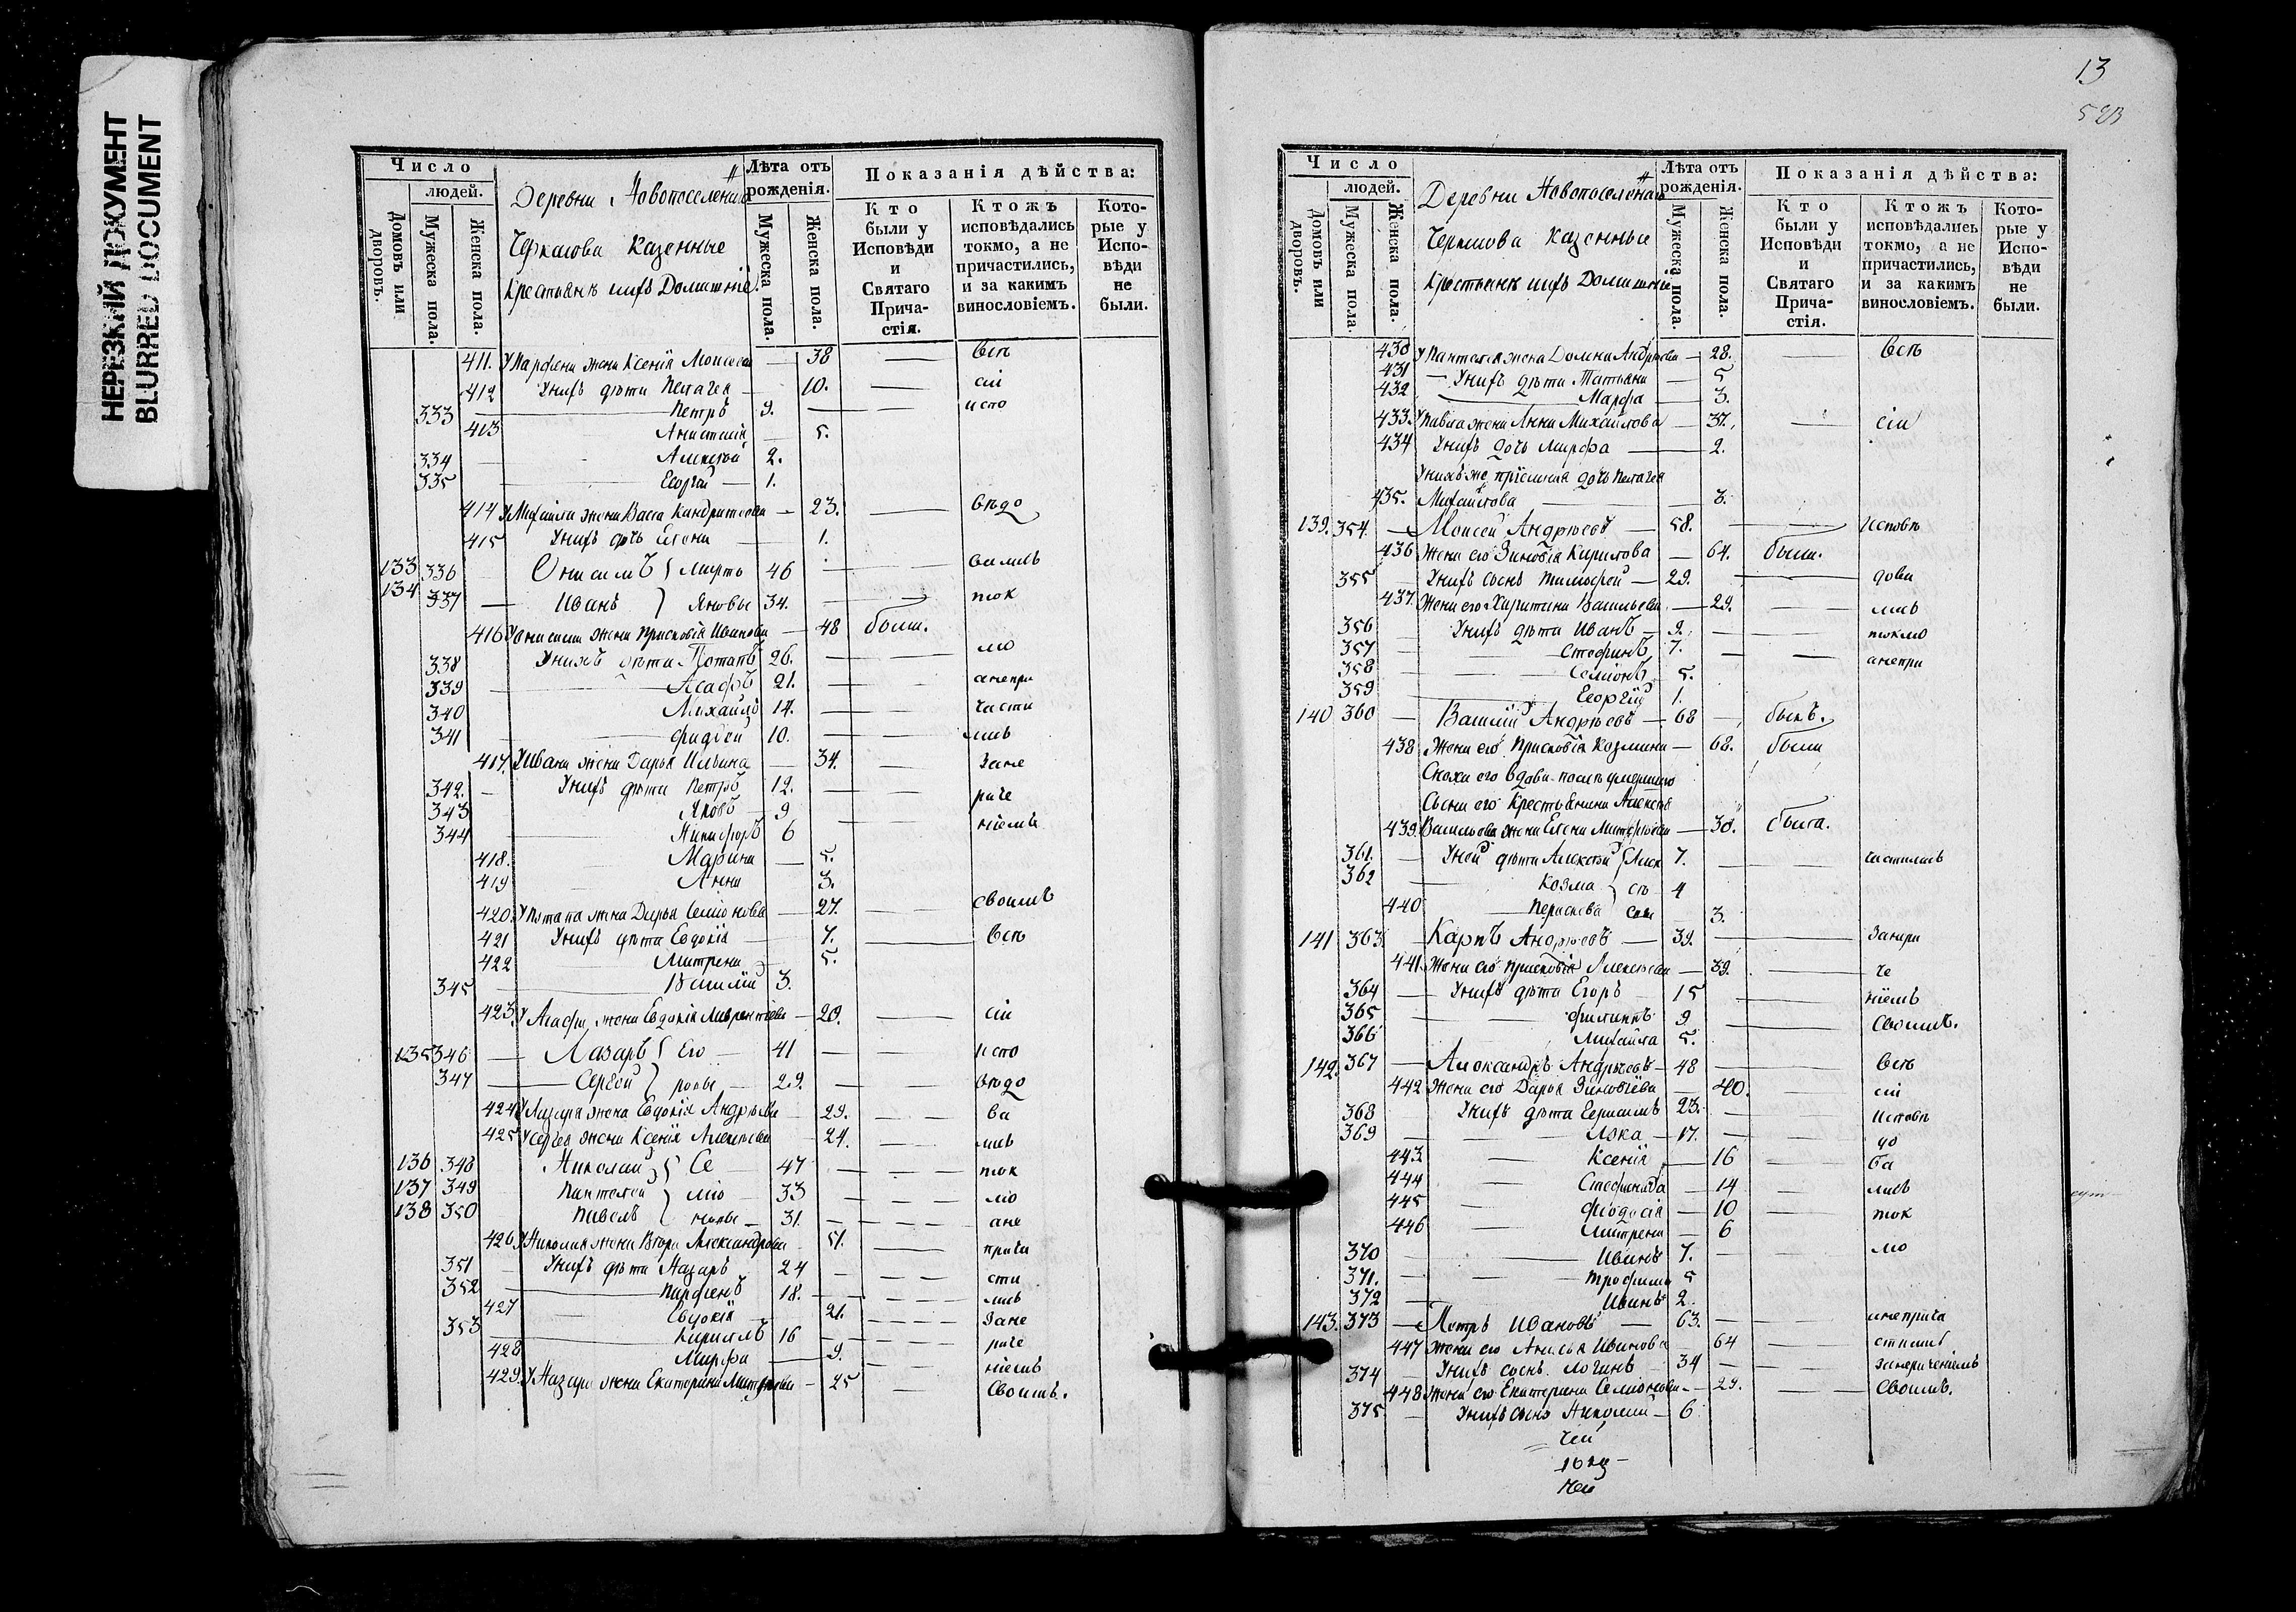 НЕРЕЗКИЙ ДОКУМЕНТ
BLURRED DOCUMENT
Число
людей.
Домовъ или дворовъ.
Мужеска пола.
Женска пола.
Деревни
Казенные
Лѣта отъ рожденія.
Мужеска пола.
Женска пола.
Показанія дѣйства:
Кто были у Исповѣди и Святаго Прича-стія.
Ктожъ исповѣдались токмо, а не причастились, и за какимъ винословіемъ.
Кото-рые у Испо-вѣди не были.
411. Парфена жена Ксенія — 38 — всѣ
412 Унихъ дѣти Пелагея — 10. — сіи
333 — Петръ 9. — испо
413 Анастасія — 5.
334 — Алексѣй 2.
335 — Георгій — 1.
414 У Михаила жена Васса — 23. — вѣдо
415 Унихъ дочь Елена — 1.
133 336 Онисимъ 46 — вались
134 337 — Иванъ 34. — ток
416 У Онисима жена Прасковія Иванова — 48 были.
мо
338 Унихъ дѣти Потапъ 26.
339 — Агафъ 21. — анепри
340 Михаилъ 14. — части
341 — 10. — лись
417. У Ивана жена Дарья Ильина — 34. — Зане
342. — Унихъ дѣти Петръ 12. — раче
343 Яковъ — 9
344 — Никифоръ 6 — ніемъ
418. Марина — 5.
419 Анна 3.
420. У Потапа жена Дарья Семіонова — 27. — своимъ
421 Унихъ дѣти Евдокія — 7. — Всѣ
422 — Матрена 5.
345 — Василій 3.
423. У Агафа жена Евдокія Лаврентіева — 20. — сіи
135 346 — Лазарь Его — 41 — испо
347 — Сергѣй ровы — 29. — вѣдо
424 У Лазаря жена Евдокія Андрѣева — 29. — ва
425 У Сергѣя жена Ксенія Алексѣева 24. — лись
136 348 Николай Се 47 — ток
137 349 Пантелей міо — 33 — мо
138 350 Павелъ новы — 31. — ане
426 У Николая жена Александрова 51. — прича
351 — Унихъ дѣти Назаръ 24 — сти
352 — Парфенъ 18. — лись
427 Евдокія 21. — Зане
353 — Кириллъ 16 — раче
428 Марфа — 9. — ніемъ
429. У Назара жена Екатерина — 25 — Своимъ.
13
Число
людей.
Домовъ или дворовъ.
Мужеска пола.
Женска пола.
Деревни
Казенные
Лѣта отъ рожденія.
Мужеска пола.
Женска пола.
Показанія дѣйства:
Кто были у Исповѣди и Святаго Прича-стія.
Ктожъ исповѣдались токмо, а не причастились, и за какимъ винословіемъ.
Кото-рые у Испо-вѣди не были.
430 У Пантелея жена Домна Андрѣева — 28. — Всѣ
431 — Унихъ дѣти Татьяна — 5
432 — Марфа — 3.
433. У Павла жена Анна Михайлова — 37. — сіи
434 Унихъ дочь Марфа — 2.
Унихъ же дочь Пелагея
435. Михайлова — 3.
139. 354. — Моисей Андрѣевъ — 58. — Исповѣ
436 Жена его Зиновія Кирилова — 64. были.
355 — Унихъ сынъ Тимофей — 29. — дова
437. Жена его Харитина Васильева — 29. — лись
356 — Унихъ дѣти Иванъ — 9. — токмо
357 — Стефанъ 7. — анепри
358 — Семіонъ — 5.
359 — Георгій 1.
140 360 — Василій Андрѣевъ — 68 — былъ.
438 Жена его Прасковія Козмина — 68. были
Сноха его вдова послѣ умершаго
Сына его Крестьянина Алексѣя
439. Васильева жена Елена — 30. была.
361. — Уней дѣти Алексѣй Алек 7. — частились
362 — Козма сѣ 4
440 — Параскева 3.
141 363 Карпъ Андрѣевъ — 39. — Занера
441. Жена его Прасковія Алексѣева — 39. — че
364 — Унихъ дѣти Егоръ 15 — ніемъ
365 — Филиппъ 9 — Своимъ.
366 Михайла 5.
142. 367 — Александръ Андрѣевъ — 48 — Всѣ
442 Жена его Дарья Зиновіева — 40. — сіи
368 Унихъ дѣти 23. — Исповѣ
369 — Лука — 17. — до
443 — Ксенія — 16 — ва
444 — Стефанида — 14 — лись
445 — Фіодосія — 10 — ток
446 — Матрена — 6
370 — Иванъ 7. — мо
371. — Трофимъ 5
372 — Иванъ 2.
143. 373 — Петръ Ивановъ — 63. — анеприча
447 Жена его Иванова 64 — стились
374 — Унихъ сынъ Логинъ 34 — занераченіемъ
448 Жена его Екатерина Семіонова — 29. — Своимъ.
375 — Унихъ сынъ Николай — 6